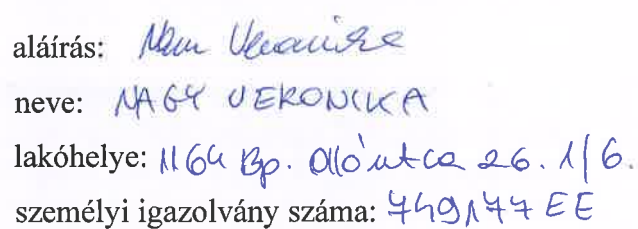 aláírás: Nagy Veronika
neve: NAGY VERONIKA
lakóhelye: 1164 Bp. Olló utca 26. 1/6.
személyi igazolvány száma: 749177 EE